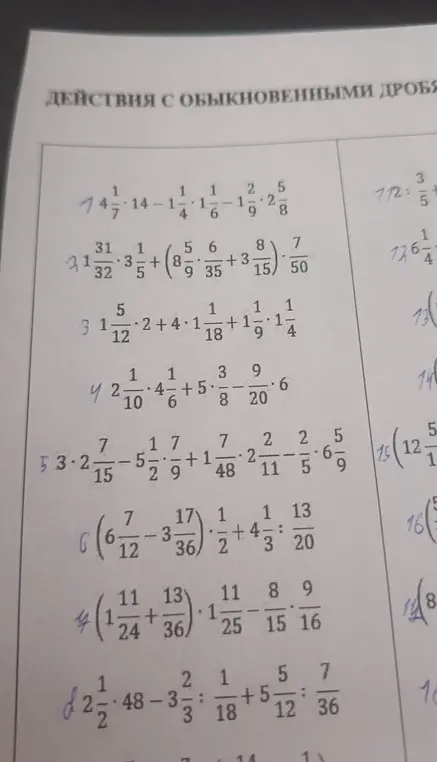 ДЕЙСТВИЯ С ОБЫКНОВЕННЫМИ ДРОБЯ
1 4 1/7 · 14 − 1 1/4 · 1 1/6 − 1 2/9 · 2 5/8
2 1 31/32 · 3 1/5 + (8 5/9 · 6/35 + 3 8/15) · 7/50
3 1 5/12 · 2 + 4 · 1 1/18 + 1 1/9 · 1 1/4
4 2 1/10 · 4 1/6 + 5 · 3/8 − 9/20 · 6
5 3 · 2 7/15 − 5 1/2 · 7/9 + 1 7/48 · 2 2/11 − 2/5 · 6 5/9
6 (6 7/12 − 3 17/36) · 1/2 + 4 1/3 : 13/20
7 (1 11/24 + 13/36) · 1 11/25 − 8/15 · 9/16
8 2 1/2 · 48 − 3 2/3 : 1/18 + 5 5/12 : 7/36
11 2 : 3/5 +
12 6 1/4
13 (
14
15 (12 5
16 (
(8